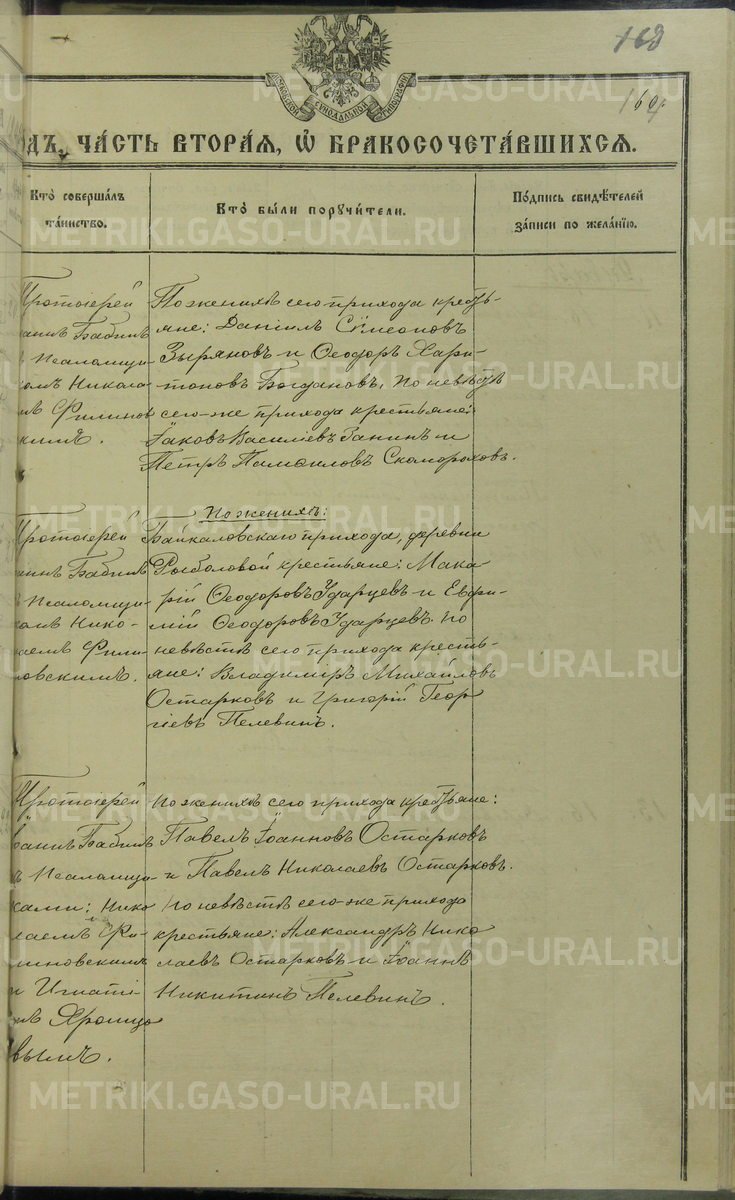 168
169
МОСКОВСКОЙ СѴНОДАЛЬНОЙ ТИПОГРАФІИ
ОДЪ, ЧАСТЬ ВТОРАЯ, Ѡ БРАКОСОЧЕТАВШИХСЯ.
Кто совершалъ
таинство.
Кто были поручители.
Подпись свидѣтелей
записи по желанію.
Протоіерей
аннъ Бабинъ
ъ Псаломщи-
омъ Никола-
мъ Филинов
кимъ.
По женихѣ сего прихода кресть-
яне: Даніилъ Сѵмеоновъ
Зыряновъ и Ѳеодоръ Хари-
тоновъ Богдановъ, по невѣстѣ
сего-же прихода крестьяне:
Іаковъ Василіевъ Занинъ и
Петръ Самоиловъ Скомороховъ.
Протоіерей
аннъ Бабинъ
ъ Псаломщи-
комъ Нико-
аемъ Фили-
новскимъ.
По женихѣ:
Байкаловскаго прихода, деревни
Рыболовой крестьяне: Мака-
рій Ѳеодоровъ Ударцевъ и Евфи-
мій Ѳеодоровъ Ударцевъ. по
невѣстѣ сего прихода кресть-
яне: Владиміръ Михайловъ
Остарковъ и Григорій Геор
гіевъ Пелевинъ.
Протоіерей
Іоаннъ Бабинъ
съ Псаломщи-
ками: Нико
лаемъ Фи-
линовскимъ
и Игнаті-
мъ Яронцо
вымъ.
По женихѣ сего прихода крестьяне:
Павелъ Іоанновъ Остарковъ
и Павелъ Николаевъ Остарковъ.
По невѣстѣ сего-же прихода
крестьяне: Александръ Нико
лаевъ Остарковъ и Іоаннъ
Никитинъ Пелевинъ.
METRIKI.GASO-URAL.RU